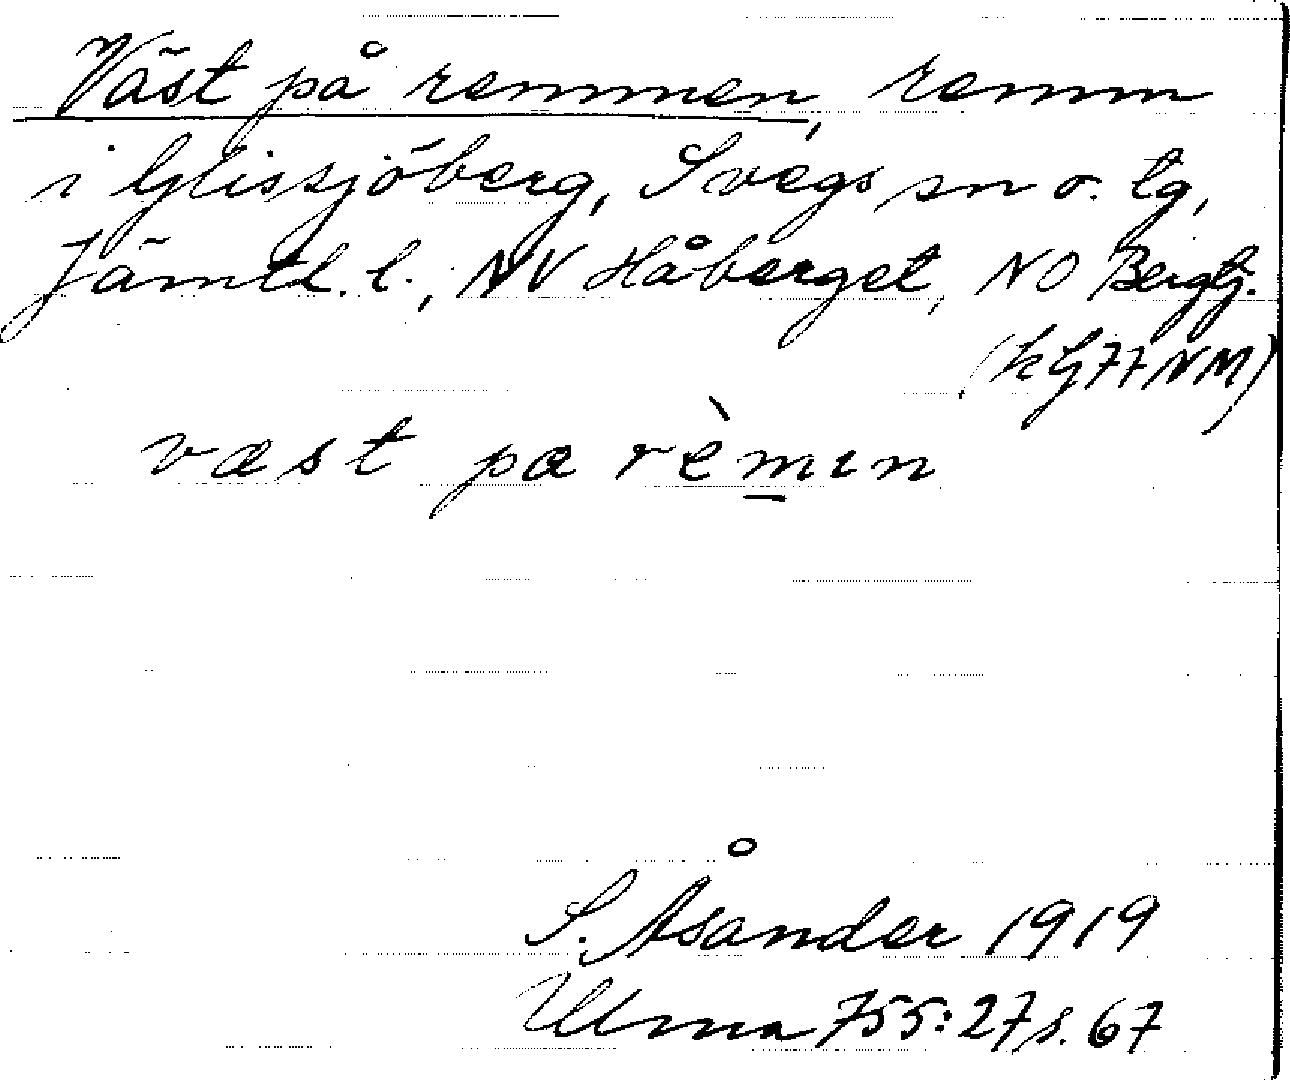 Väst på remmen, remm
i Glissjöberg, Svegs sn o. tg,
Jämtl. l.; NV Håberget, NO Bergtj.
(k G 77 NM)
væst pa rèmın
S. Åsander 1919
Ulma 755:27 s. 67